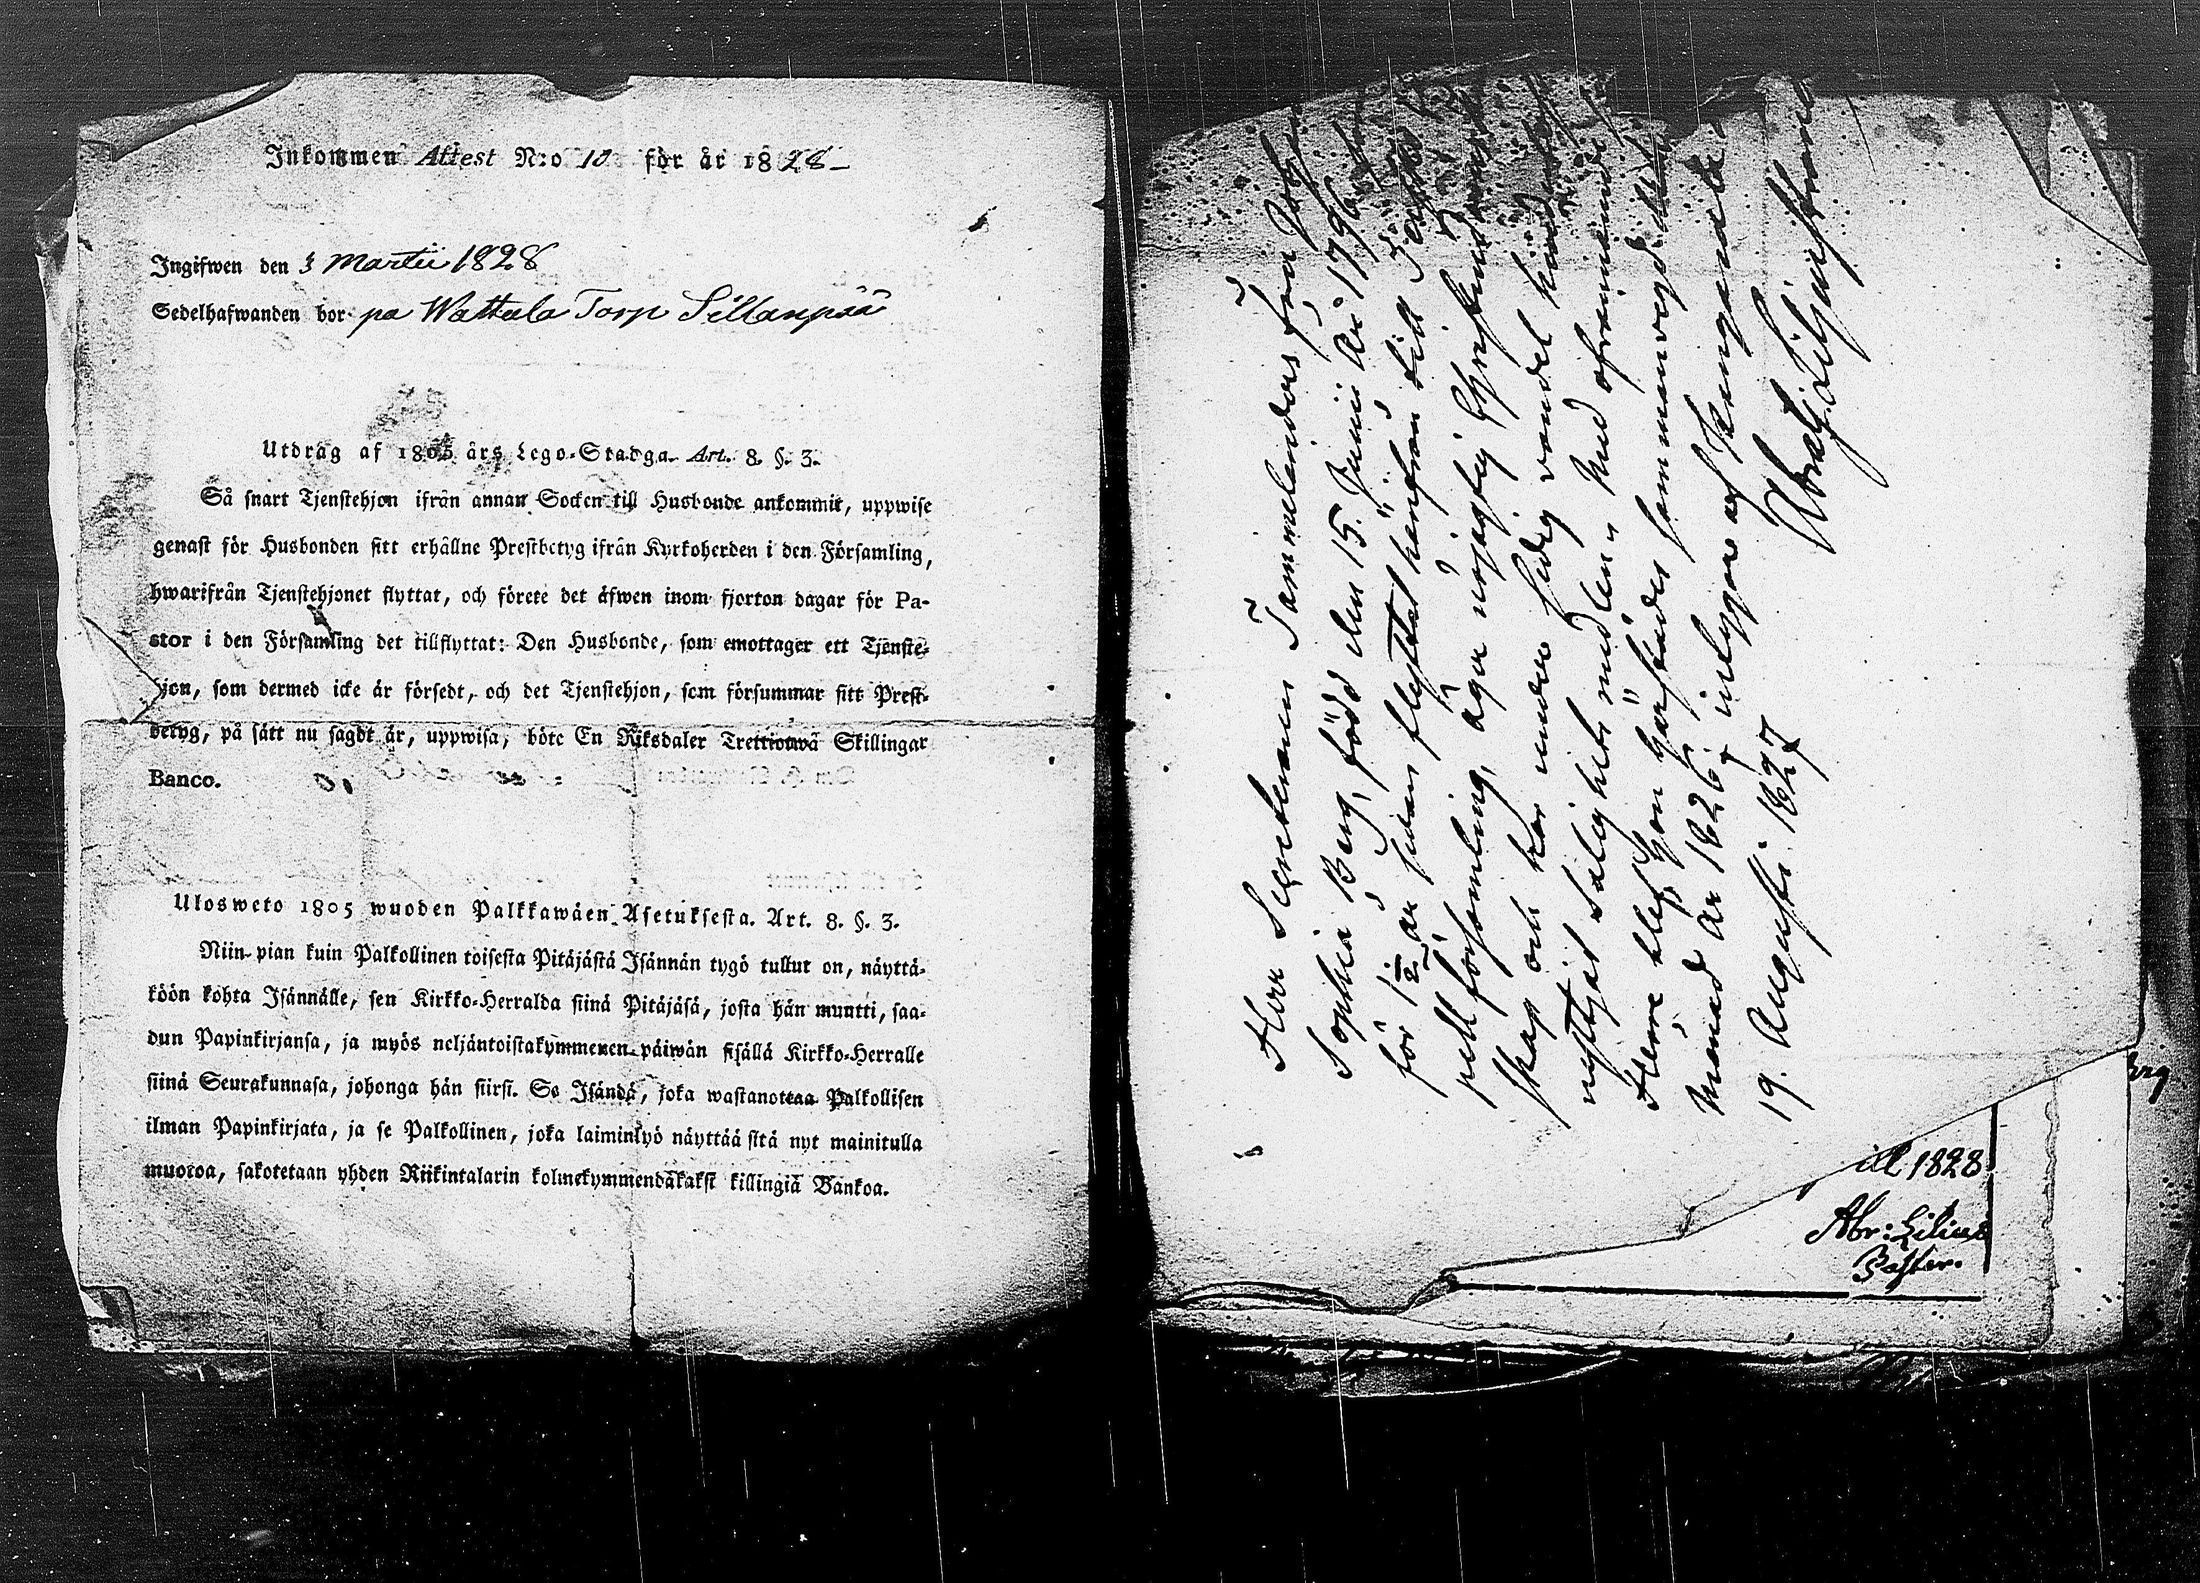 Inkommen Attest N:o 10 för år 1828
Ingifwen den 3 Martii 1828
Sedelhafwanden bor på Wattula Torp Sillanpää
Utdrag af 1805 års Lego-Stadga. Art. 8. §. 3.
Så snart Tjenstehjon ifrån annan Socken till Husbonde ankommit, uppwise
genast för Husbonden sitt erhållne Prestbetyg ifrån Kyrkoherden i den Församling,
hwarifrån Tjenstehjonet flyttat, och förete det äfwen inom fjorton dagar för Pa-
stor i den Församling det tillflyttat: Den Husbonde, som emottager ett Tjenste-
hjon, som dermed icke är försedt, och det Tjenstehjon, som försummar sitt Prest-
betyg, på sätt nu sagdt är, uppwisa, böte En Riksdaler Trettiotwå Skillingar
Banco.
Ulosweto 1805 wuoden Palkkawäen Asetuksesta. Art. 8. §. 3.
Niin pian kuin Palkollinen toisesta Pitäjästä Isännän tygö tullut on, näyttä-
köön kohta Isännälle, sen Kirkko-Herralda siinä Pitäjäsä, josta hän muutti, saa-
dun Papinkirjansa, ja myös neljäntoistakymmenen päiwän sisällä Kirkko-Herralle
siinä Seurakunnasa, johonga hän siirsi. Se Isändä, joka wastanottaa Palkollisen
ilman Papinkirjata, ja se Palkollinen, joka laiminlyö näyttää sitä nyt mainitulla
muotoa, sakotetaan yhden Riikintalarin kolmekymmendäkaksi killingiä Bankoa.
Herr Secreteraren Tammelanders
Sophia Berg, född den 15. Junii År 1796
för 1½ år sedan flyttat härifrån till
pell församling, äger nöjagtig Christendoms
skap och har under sedig vandel
nyttjat Salighets medlen; Med ofvannämnde
Herre blef hon härstädes sammanvigd
Månad År 1826, intygar af Kengais
19. Augusti 1827
1828
Abr: Lilius
Pastor.